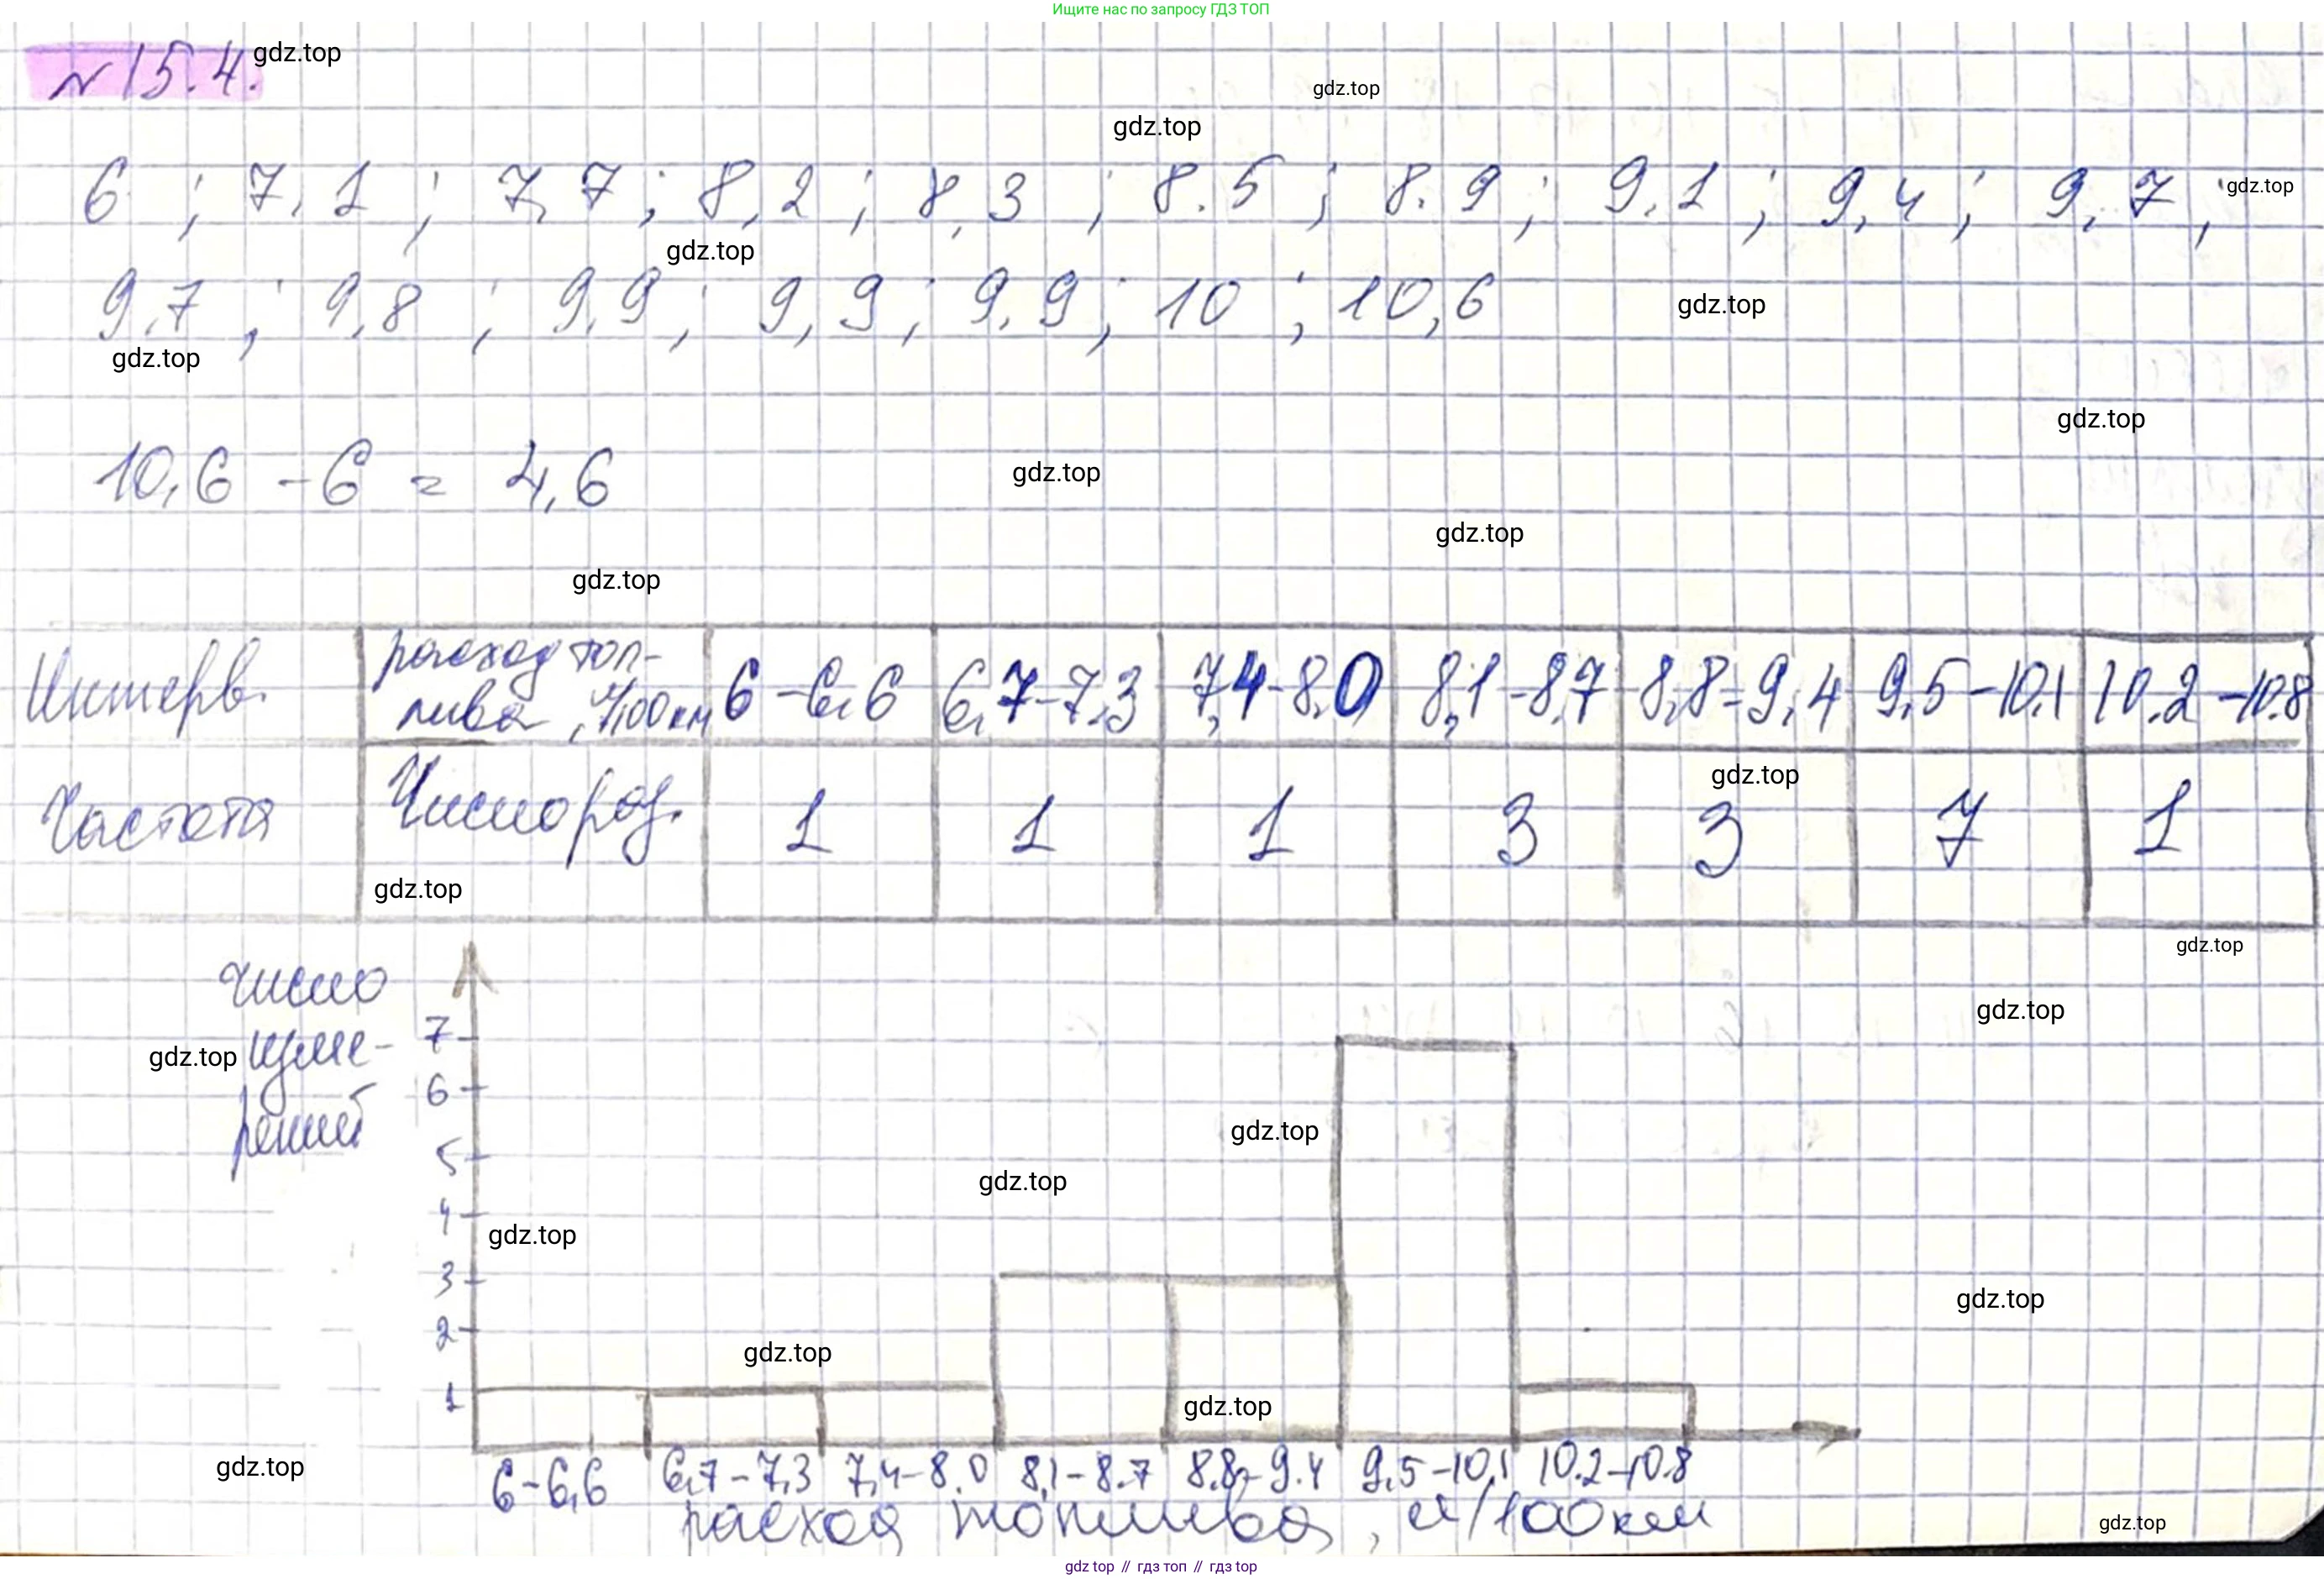 Ищите нас по запросу ГДЗ ТОП
№15.4. gdz.top
gdz.top
gdz.top
6 ; 7,1 ; 7,7 ; 8,2 ; 8,3 ; 8.5 ; 8.9 ; 9,1 ; 9,4 ; 9,7 ; gdz.top
gdz.top
9,7 ; 9,8 ; 9,9 ; 9,9 ; 9,9 ; 10 ; 10,6 gdz.top
gdz.top
gdz.top
10,6 - 6 = 4,6 gdz.top
gdz.top
gdz.top
Интерв. расход топ- 6-6,6 6,7-7,3 7,4-8,0 8,1-8,7 8,8-9,4 9,5-10,1 10.2-10.8
лива, л/100км
gdz.top
Частота Число раз. 1 1 1 3 3 7 1
gdz.top
gdz.top
число
gdz.top
7
gdz.top изме-
6
рений
gdz.top
5
gdz.top
4
gdz.top
3
gdz.top
2
gdz.top
1
gdz.top
gdz.top
6-6,6 6,7-7,3 7,4-8.0 8,1-8.7 8.8-9.4 9,5-10,1 10.2-10.8
расход топлива, л/100км
gdz.top
gdz top // гдз топ // гдз top